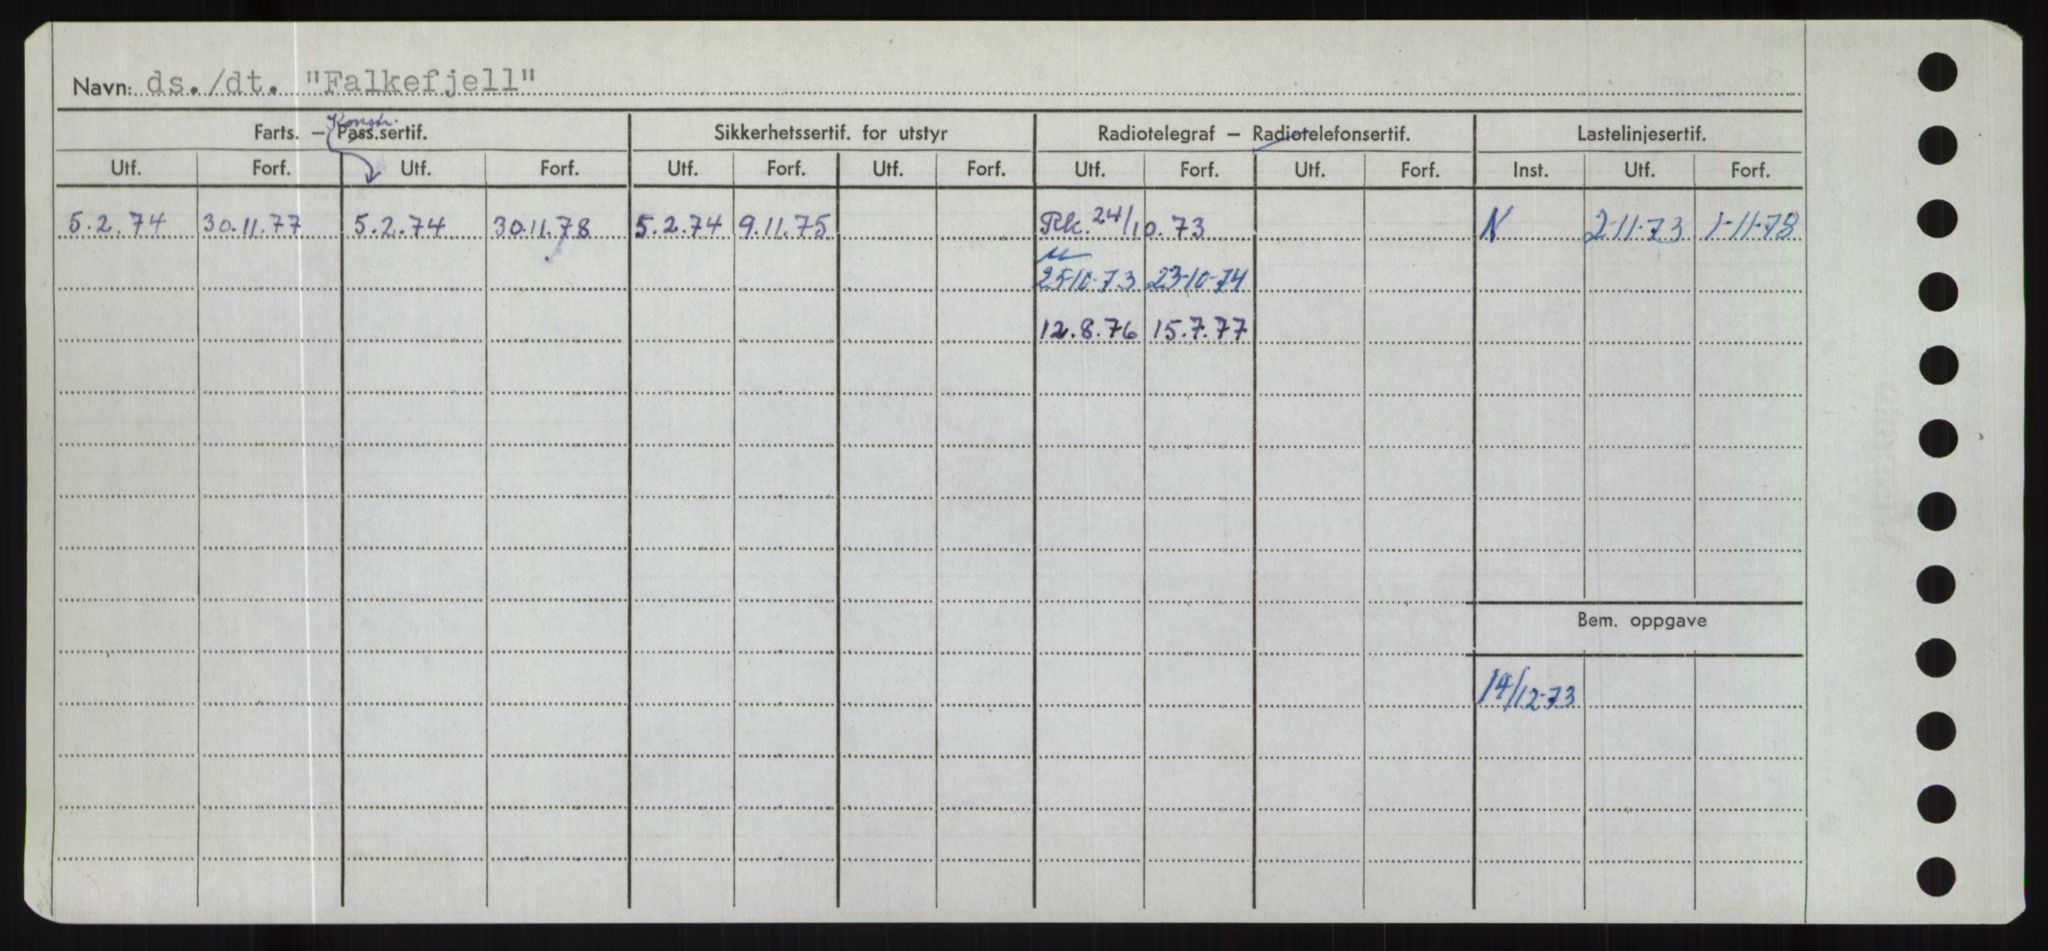 Navn: ds./dt. "Falkefjell"
Konstr.
Farts. — Pass.sertif. Sikkerhetssertif. for utstyr Radiotelegraf — Radiotelefonsertif. Lastelinjesertif.
Utf. Forf. Utf. Forf. Utf. Forf. Utf. Forf. Utf. Forf. Utf. Forf. Inst. Utf. Forf.
5.2.74 30.11.77 5.2.74 30.11.78 5.2.74 9.11.75 Rk. 24/10.73 N 2-11-73 1-11-78
25-10-73 23-10-74
12.8.76 15.7.77
Bem. oppgave
14/12-73